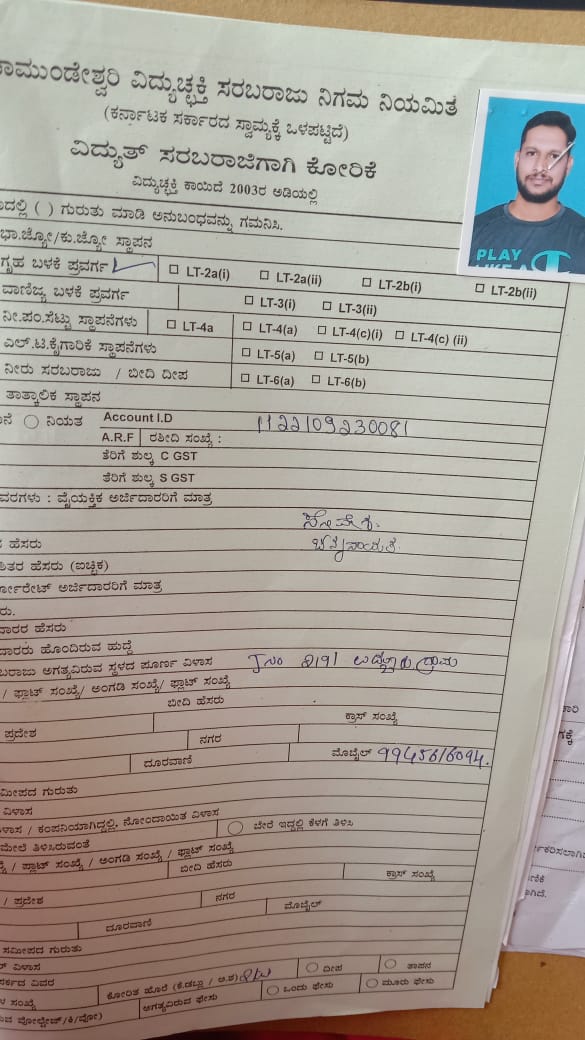 ಾಮುಂಡೇಶ್ವರಿ ವಿದ್ಯುಚ್ಛಕ್ತಿ ಸರಬರಾಜು ನಿಗಮ ನಿಯಮಿತ
(ಕರ್ನಾಟಕ ಸರ್ಕಾರದ ಸ್ವಾಮ್ಯಕ್ಕೆ ಒಳಪಟ್ಟಿದೆ)
ವಿದ್ಯುತ್ ಸರಬರಾಜಿಗಾಗಿ ಕೋರಿಕೆ
ವಿದ್ಯುಚ್ಛಕ್ತಿ ಕಾಯಿದೆ 2003ರ ಅಡಿಯಲ್ಲಿ
PLAY
ದಲ್ಲಿ ( ) ಗುರುತು ಮಾಡಿ ಅನುಬಂಧವನ್ನು ಗಮನಿಸಿ.
ಭಾ.ಜ್ಯೋ/ಕು.ಜ್ಯೋ ಸ್ಥಾಪನ
ಗೃಹ ಬಳಕೆ ಪ್ರವರ್ಗ LT-2a(i) LT-2a(ii) LT-2b(i) LT-2b(ii)
ವಾಣಿಜ್ಯ ಬಳಕೆ ಪ್ರವರ್ಗ LT-3(i) LT-3(ii)
ನೀ.ಪಂ.ಸೆಟ್ಟು ಸ್ಥಾಪನೆಗಳು LT-4a LT-4(a) LT-4(c)(i) LT-4(c) (ii)
ಎಲ್.ಟಿ.ಕೈಗಾರಿಕೆ ಸ್ಥಾಪನೆಗಳು LT-5(a) LT-5(b)
ನೀರು ಸರಬರಾಜು / ಬೀದಿ ದೀಪ LT-6(a) LT-6(b)
ತಾತ್ಕಾಲಿಕ ಸ್ಥಾಪನ
ನಿಯತ Account I.D 1122109230081
A.R.F ರಶೀದಿ ಸಂಖ್ಯೆ :
ತೆರಿಗೆ ಶುಲ್ಕ C GST
ತೆರಿಗೆ ಶುಲ್ಕ S GST
ವರಗಳು : ವೈಯಕ್ತಿಕ ಅರ್ಜಿದಾರರಿಗೆ ಮಾತ್ರ
ಹೆಸರು
ತರ ಹೆಸರು (ಐಚ್ಛಿಕ)
ರ್ಪೋರೇಟ್ ಅರ್ಜಿದಾರರಿಗೆ ಮಾತ್ರ
ರು.
ದಾರರ ಹೆಸರು
ದಾರರು ಹೊಂದಿರುವ ಹುದ್ದೆ
ಬರಾಜು ಅಗತ್ಯವಿರುವ ಸ್ಥಳದ ಪೂರ್ಣ ವಿಳಾಸ ಗ್ರಾಮ
/ ಫ್ಲಾಟ್ ಸಂಖ್ಯೆ/ ಅಂಗಡಿ ಸಂಖ್ಯೆ/ ಫ್ಲಾಟ್ ಸಂಖ್ಯೆ
ಬೀದಿ ಹೆಸರು
ಪ್ರದೇಶ ಕ್ರಾಸ್ ಸಂಖ್ಯೆ
ನಗರ
ದೂರವಾಣಿ ಮೊಬೈಲ್ 9945616094.
ಮೀಪದ ಗುರುತು
ವಿಳಾಸ
ಳಾಸ / ಕಂಪನಿಯಾಗಿದ್ದಲ್ಲಿ, ನೋಂದಾಯಿತ ವಿಳಾಸ
ಮೇಲೆ ತಿಳಿಸಿರುವಂತೆ ಬೇರೆ ಇದ್ದಲ್ಲಿ ಕೆಳಗೆ ತಿಳಿಸಿ
/ ಫ್ಲಾಟ್ ಸಂಖ್ಯೆ / ಅಂಗಡಿ ಸಂಖ್ಯೆ / ಫ್ಲಾಟ್ ಸಂಖ್ಯೆ
ಬೀದಿ ಹೆಸರು
/ ಪ್ರದೇಶ ಕ್ರಾಸ್ ಸಂಖ್ಯೆ
ನಗರ
ದೂರವಾಣಿ ಮೊಬೈಲ್
ಸಮೀಪದ ಗುರುತು
ವಿಳಾಸ
ದೀಪ ತಾಪನ
ಸಂಖ್ಯೆ
ಅಗತ್ಯವಿರುವ ಫೇಸು ಒಂದು ಫೇಸು ಮೂರು ಫೇಸು